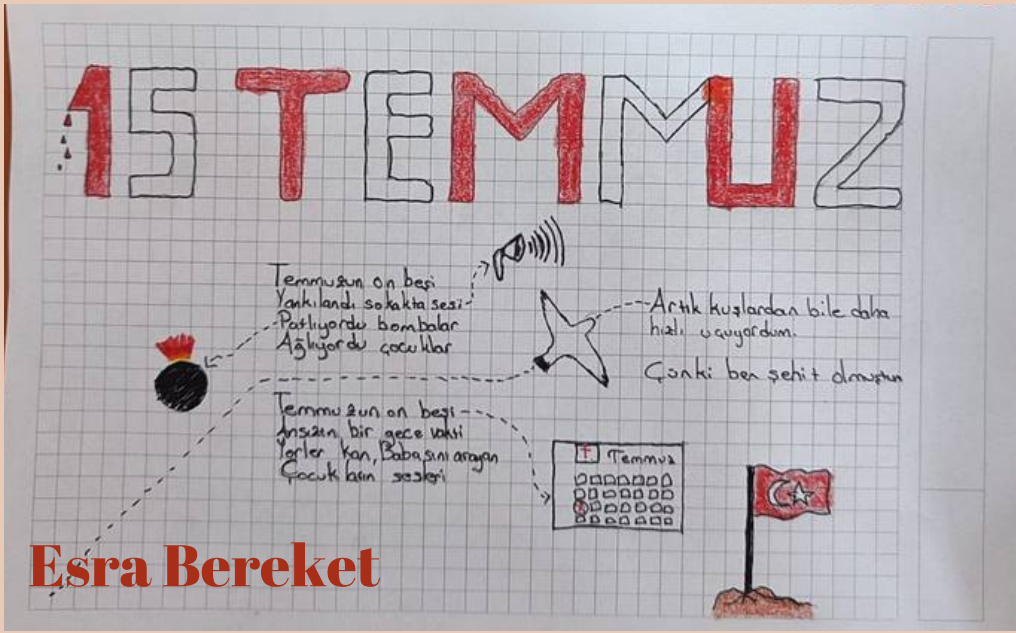 15 TEMMUZ
Temmuzun on beşi
Yankılandı sokakta sesi
Patlıyordu bombalar
Ağlıyordu çocuklar
Artık kuşlardan bile daha
hızlı uçuyordum.
Çünki ben şehit olmuştum
Temmuzun on beşi
Ansızın bir gece vakti
Yerler kan, Babasını arayan
Çocukların sesleri
Temmuz
Esra Bereket